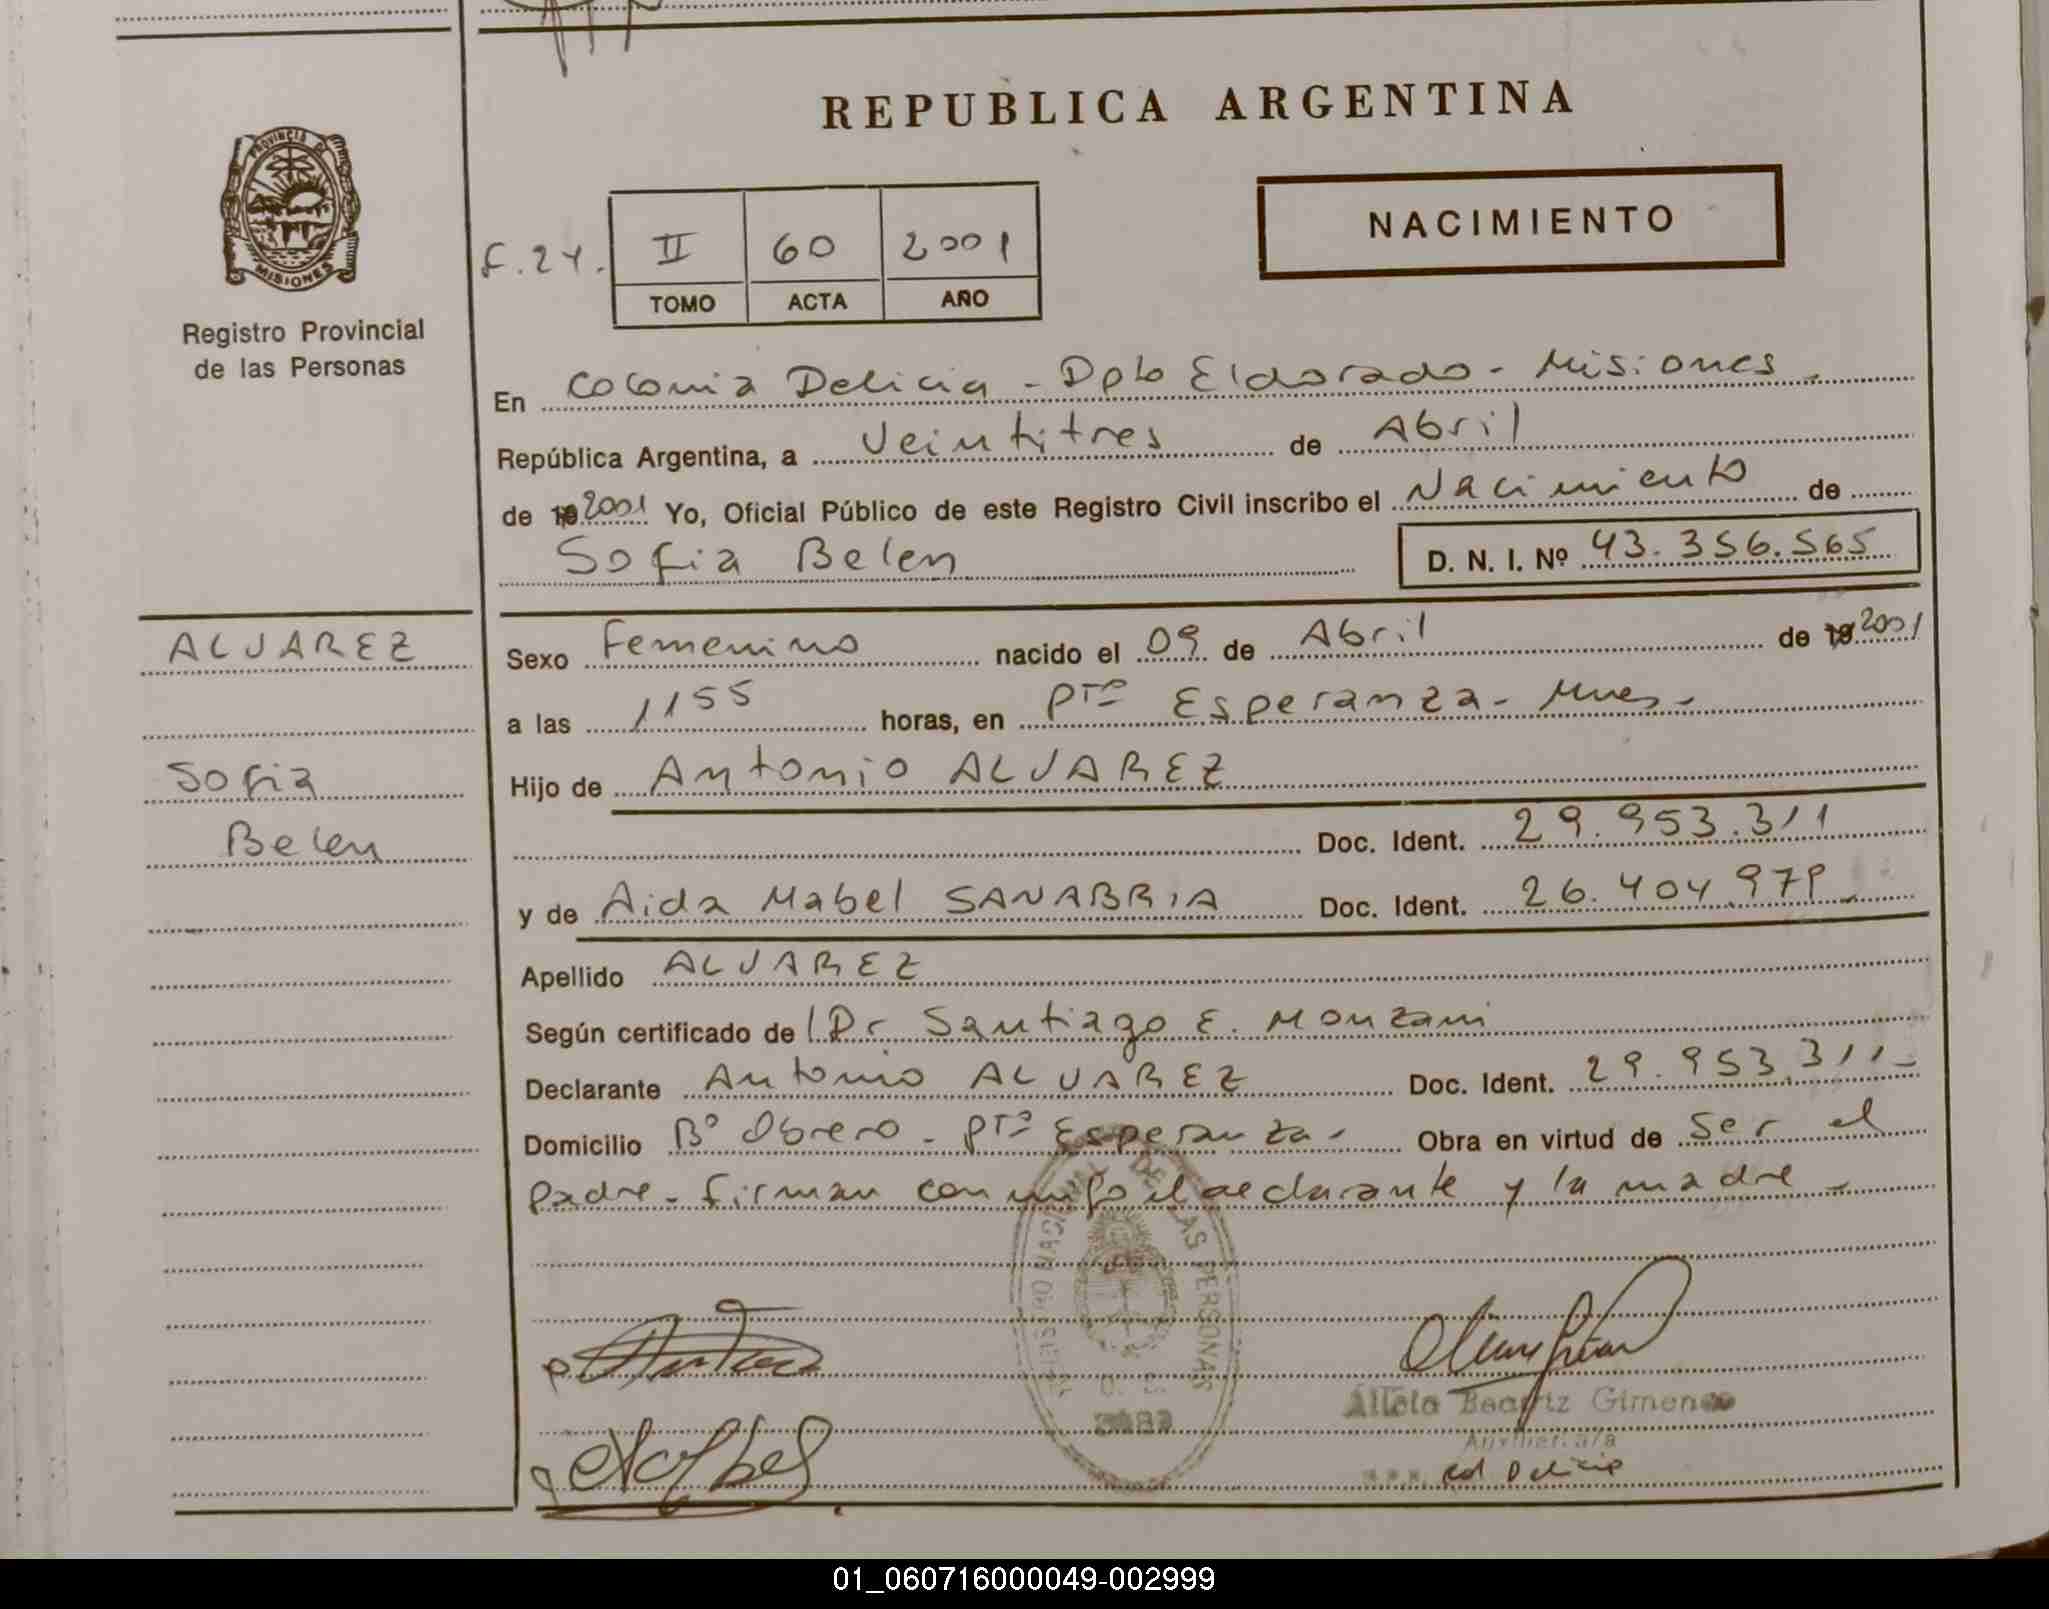 REPUBLICA ARGENTINA
PROVINCIA DE
MISIONES
Registro Provincial
de las Personas
NACIMIENTO
F. 24. II 60 2001
TOMO ACTA AÑO
En Colonia Delicia - Dpto Eldorado - Misiones -
República Argentina, a Veintitres de Abril
de 19 2001 Yo, Oficial Público de este Registro Civil inscribo el Nacimiento de
Sofia Belen D. N. I. Nº 43.356.565
ALVAREZ
Sofia
Belen
Sexo Femenino nacido el 09 de Abril de 19 2001
a las 1155 horas, en Pto Esperanza - Mnes -
Hijo de Antonio ALVAREZ
Doc. Ident. 29.953.311
y de Aida Mabel SANABRIA Doc. Ident. 26.404.979 -
Apellido ALVAREZ
Según certificado de Dr Santiago E. Monzani
Declarante Antonio ALVAREZ Doc. Ident. 29.953.311 -
Domicilio Bº Obrero - Pto Esperanza - Obra en virtud de Ser el
padre - firman conmigo el declarante y la madre -
DE LAS PERSONAS
Beatriz Gimenez
Col Delicia
01_060716000049-002999